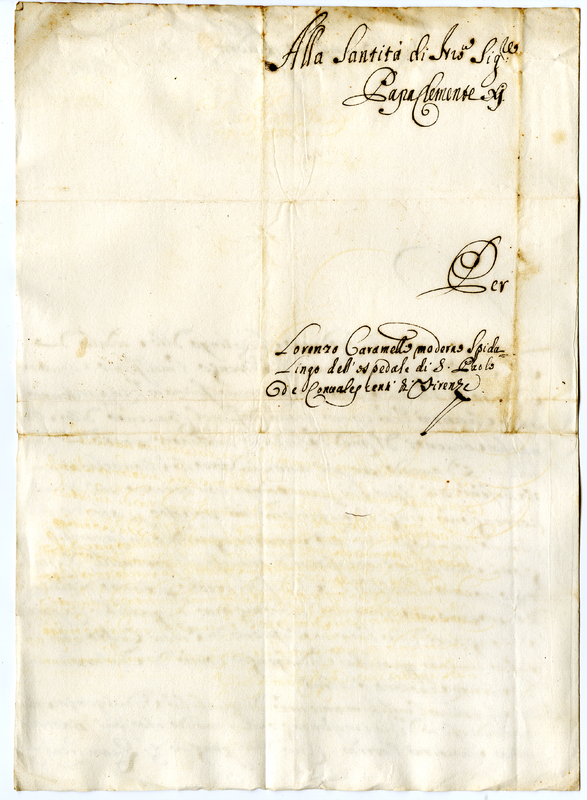 Alla Santità di Nro Sigre
Papa Clemente XI
Per
Lorenzo Caramelli moderno Speda=
lingo dell'ospedale di S. Paolo
de Conualescenti di Firenze